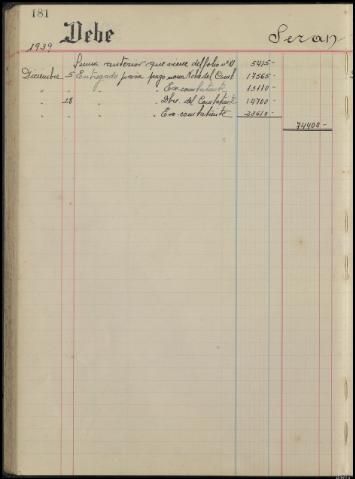 181
Debe
Seran
1939
Suma anterior que viene del folio nº 5415-
Diciembre 5 Entregado para pago del Comb 17565-
" " " Ex-combatiente 13110-
" 28 " del Combatiente 14700-
" Ex-combatiente 23610-
74400-